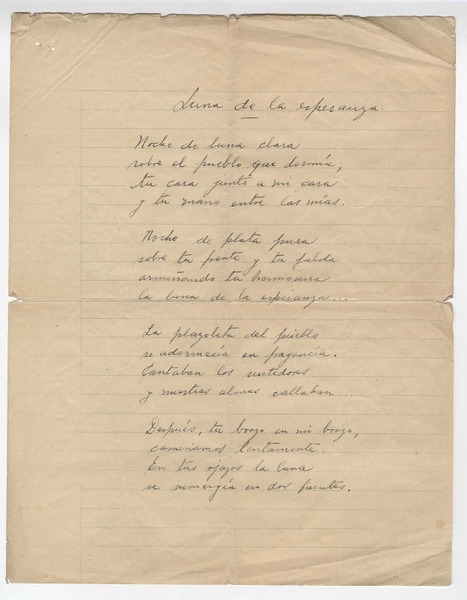 Luna de la esperanza.
Noche de luna clara
sobre el pueblo que dormía;
tu cara junto a mi cara
y tu mano entre las mías.
Noche de plata pura
sobre tu frente y tu falda
armiñando tu hermosura
la luna de la esperanza...
La plazoleta del pueblo
se adormecía en fragancia.
Cantaban los surtidores
y nuestras almas callaban...
Después, tu brazo en mi brazo,
caminamos lentamente.
En tus ojazos la luna
se sumergía en dos fuentes.